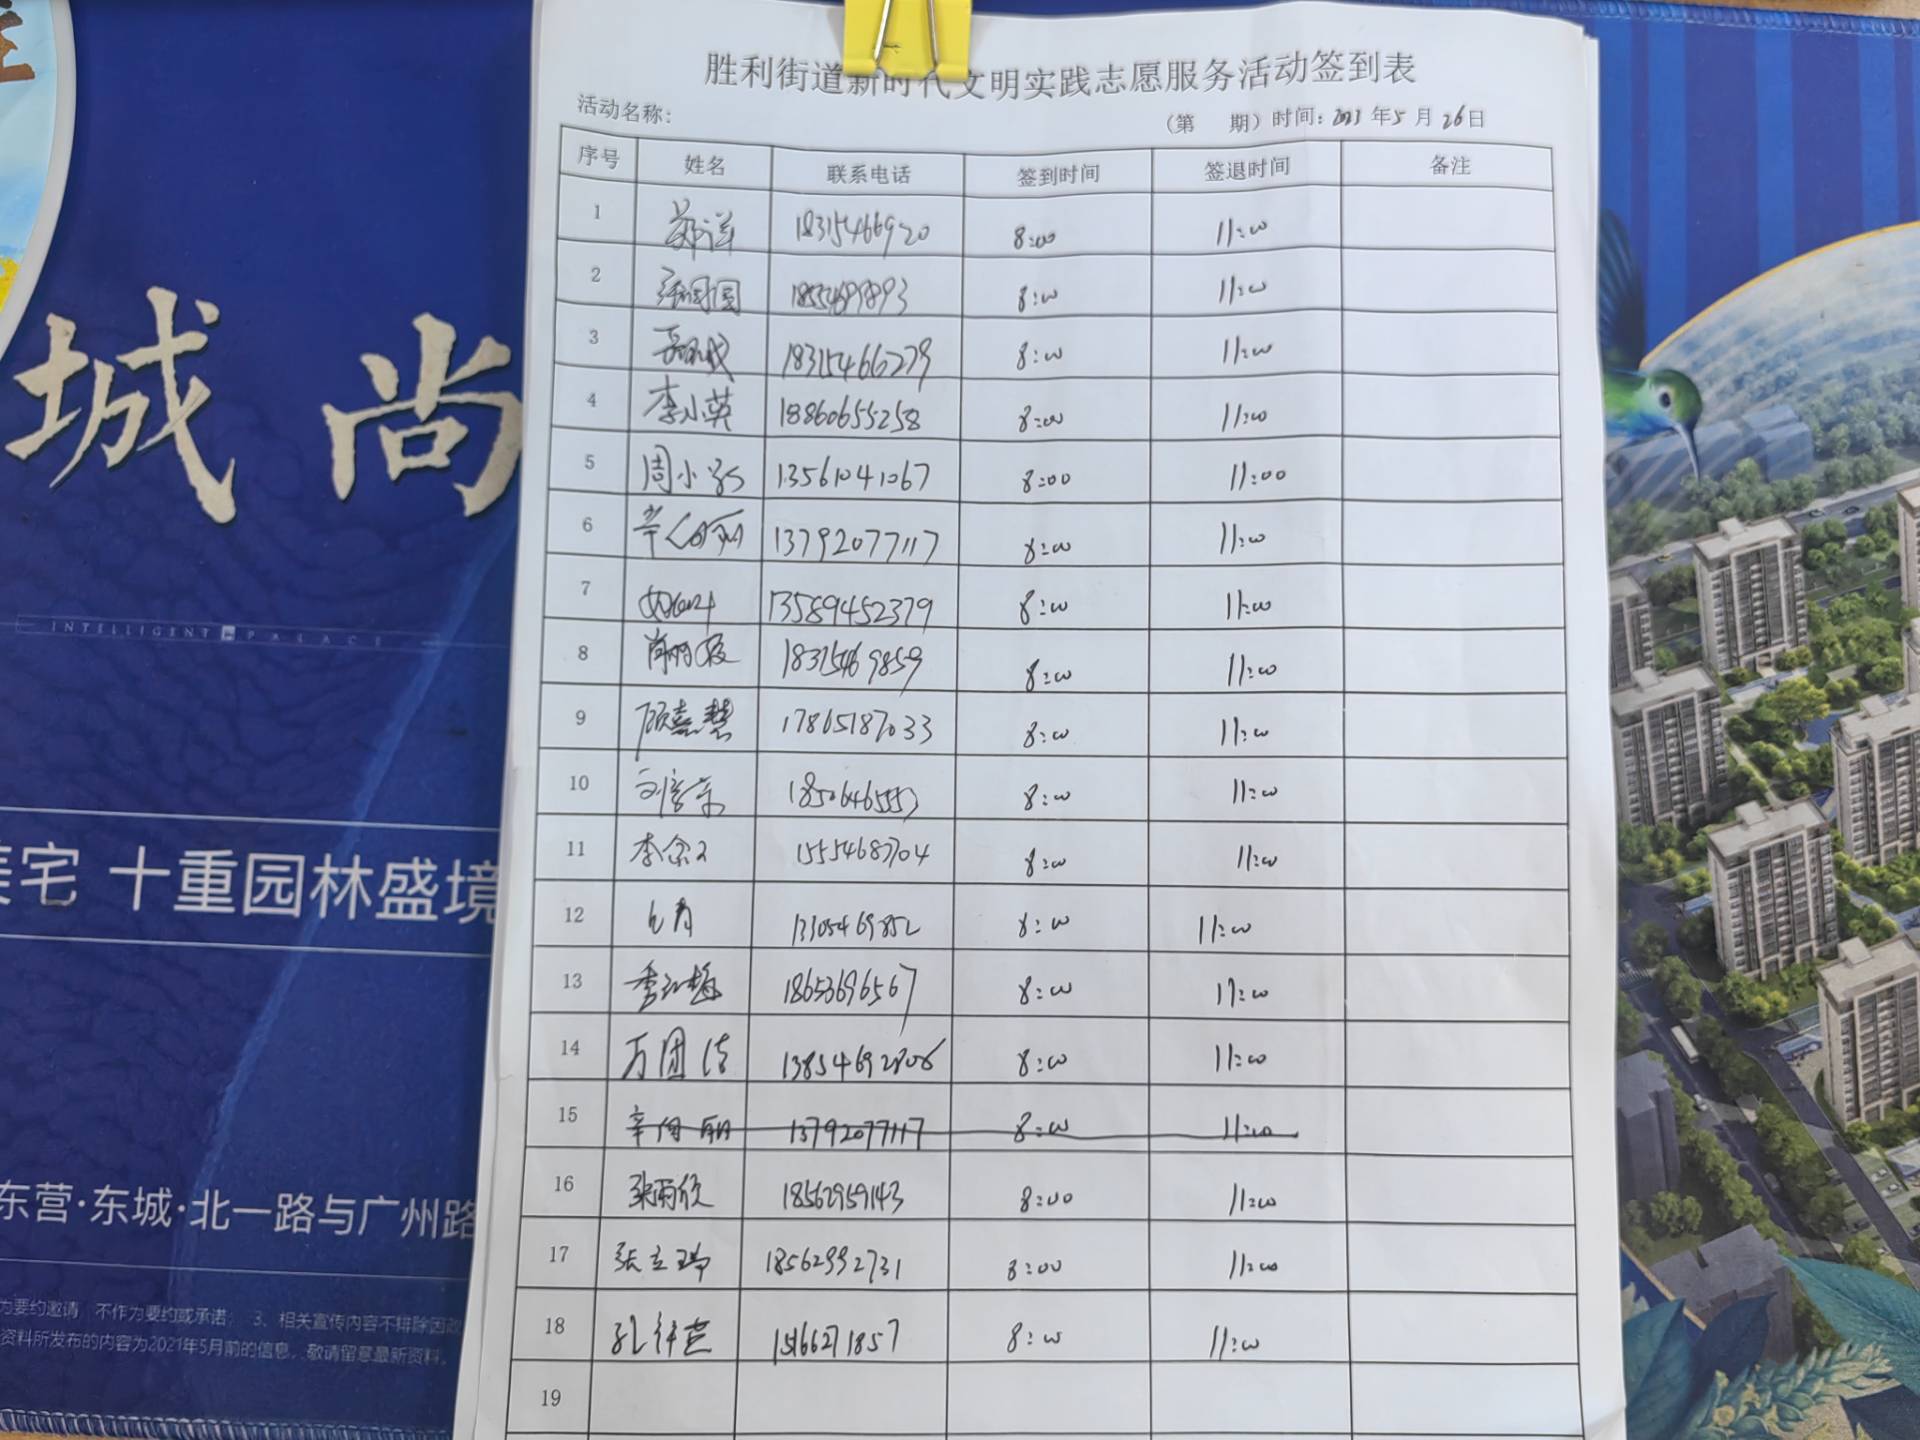 胜利街道新时代文明实践志愿服务活动签到表
活动名称：
（第 期）时间：2023年5月26日
序号 姓名 联系电话 签到时间 签退时间 备注
1 郑洋 18315466920 8:00 11:00
2 张园园 18554699893 8:00 11:00
3 18315466279 8:00 11:00
4 李小英 18860655258 8:00 11:00
5 周小 13561041067 8:00 11:00
6 辛俊丽 13792077117 8:00 11:00
7 13589452379 8:00 11:00
8 18315469859 8:00 11:00
9 顾嘉慧 17865187033 8:00 11:00
10 8:00 11:00
11 李 15554687704 8:00 11:00
12 13305469852 8:00 11:00
13 季红梅 18653696567 8:00 11:00
14 万团结 8:00 11:00
15 辛俊丽 13792077117 8:00 11:00
16 张雨欣 18562959143 8:00 11:00
17 张立瑞 18562992731 8:00 11:00
18 孔祥芸 15166271857 8:00 11:00
19
城尚
INTELLIGENT PALACE
美宅 十重园林盛境
东营·东城·北一路与广州路
为要约邀请 不作为要约或承诺； 3、相关宣传内容不排除因政
资料所发布的内容为2021年5月前的信息，敬请留意最新资料。